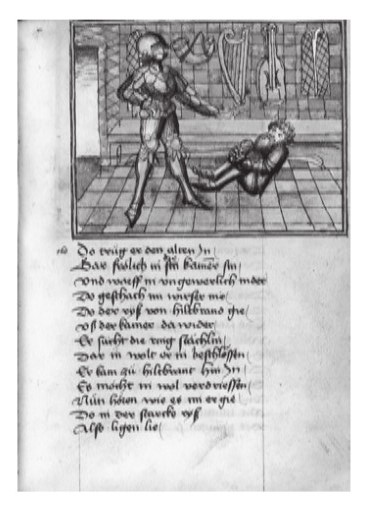 Do trůg er den alten In
Gar frölich in sin kamer sin
Vnd warff in vngewerlich nider
Do geschach im wirser nie
Do der ryß von hiltbrand gie
Vß der kamer da wider
Er sucht die ring stächlin
Dar in wolt er in beschlössen
Er kam zů hiltbrant hin In
Es möcht in wol verdriessen
Nůn hören wie es im ergie
Do in der starcke ryß
Also ligen lie